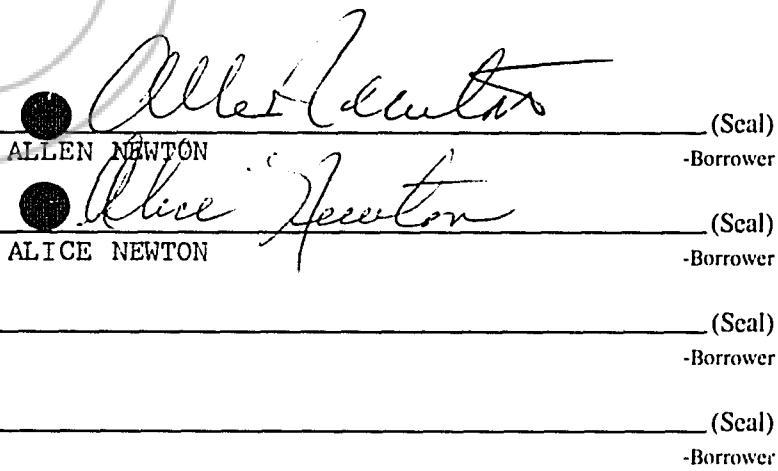 Allen Newton (Seal)
ALLEN NEWTON -Borrower
Alice Newton (Seal)
ALICE NEWTON -Borrower
(Seal)
-Borrower
(Seal)
-Borrower